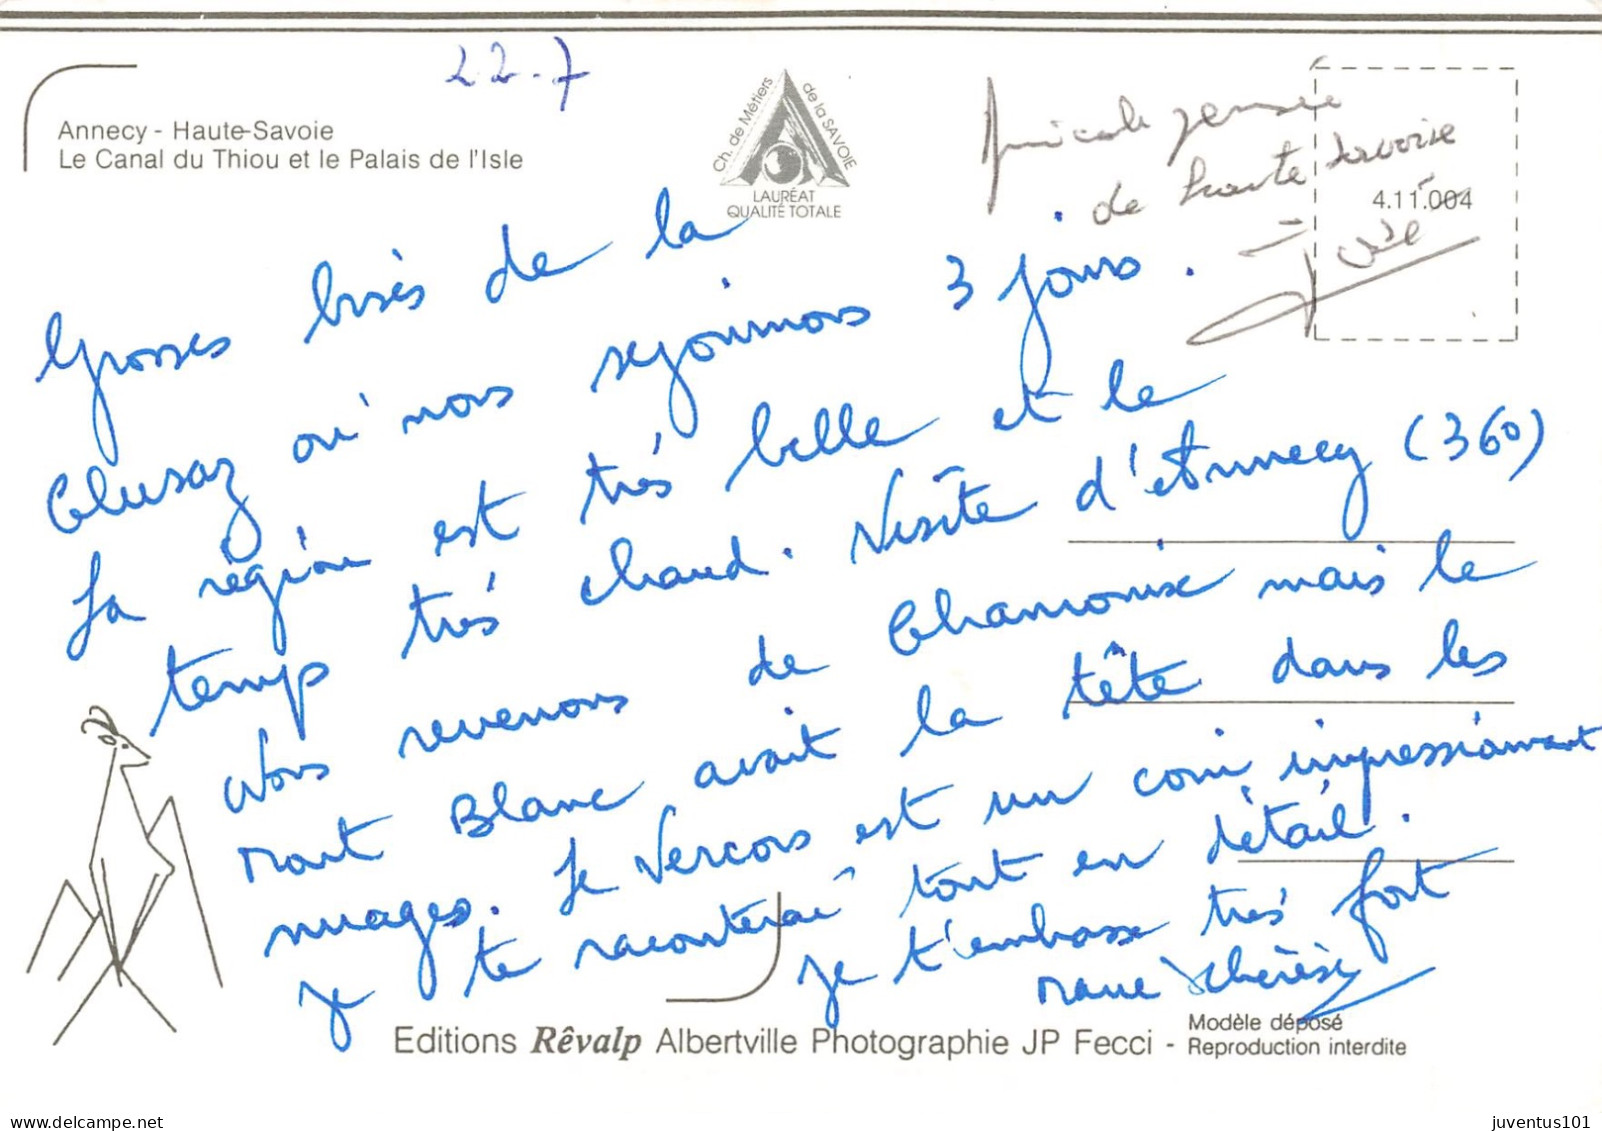 22-7
Annecy - Haute-Savoie
Le Canal du Thiou et le Palais de l'Isle
Ch. de Métiers de la SAVOIE
LAURÉAT
QUALITÉ TOTALE
Amicale pensée
de haute Savoie
4.11.004
José
Grosses bises de la
Clusaz où nous sejournons 3 jours.
La région est très belle et le
temps très chaud. Visite d'Annecy (36°)
Nous revenons de Chamonix mais le
Mont Blanc avait la tête dans les
nuages. Le Vercors est un coin impressionnant
je te raconterai tout en détail.
je t'embrasse très fort
Marie Thérèse
Editions Rêvalp Albertville Photographie JP Fecci - Modèle déposé
Reproduction interdite
delcampe.net
juventus101